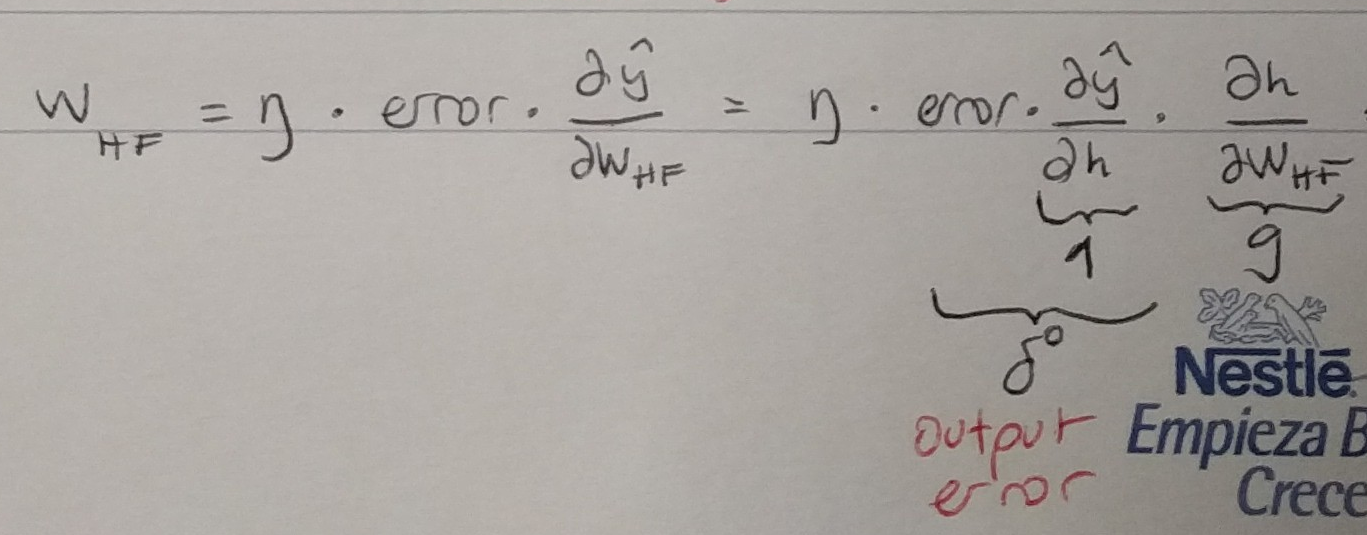 W_HF = η · error · ∂ŷ/∂W_HF = η · error · ∂ŷ/∂h · ∂h/∂W_HF
1 g
δ^o
output
error
Nestlé
Empieza B
Crece